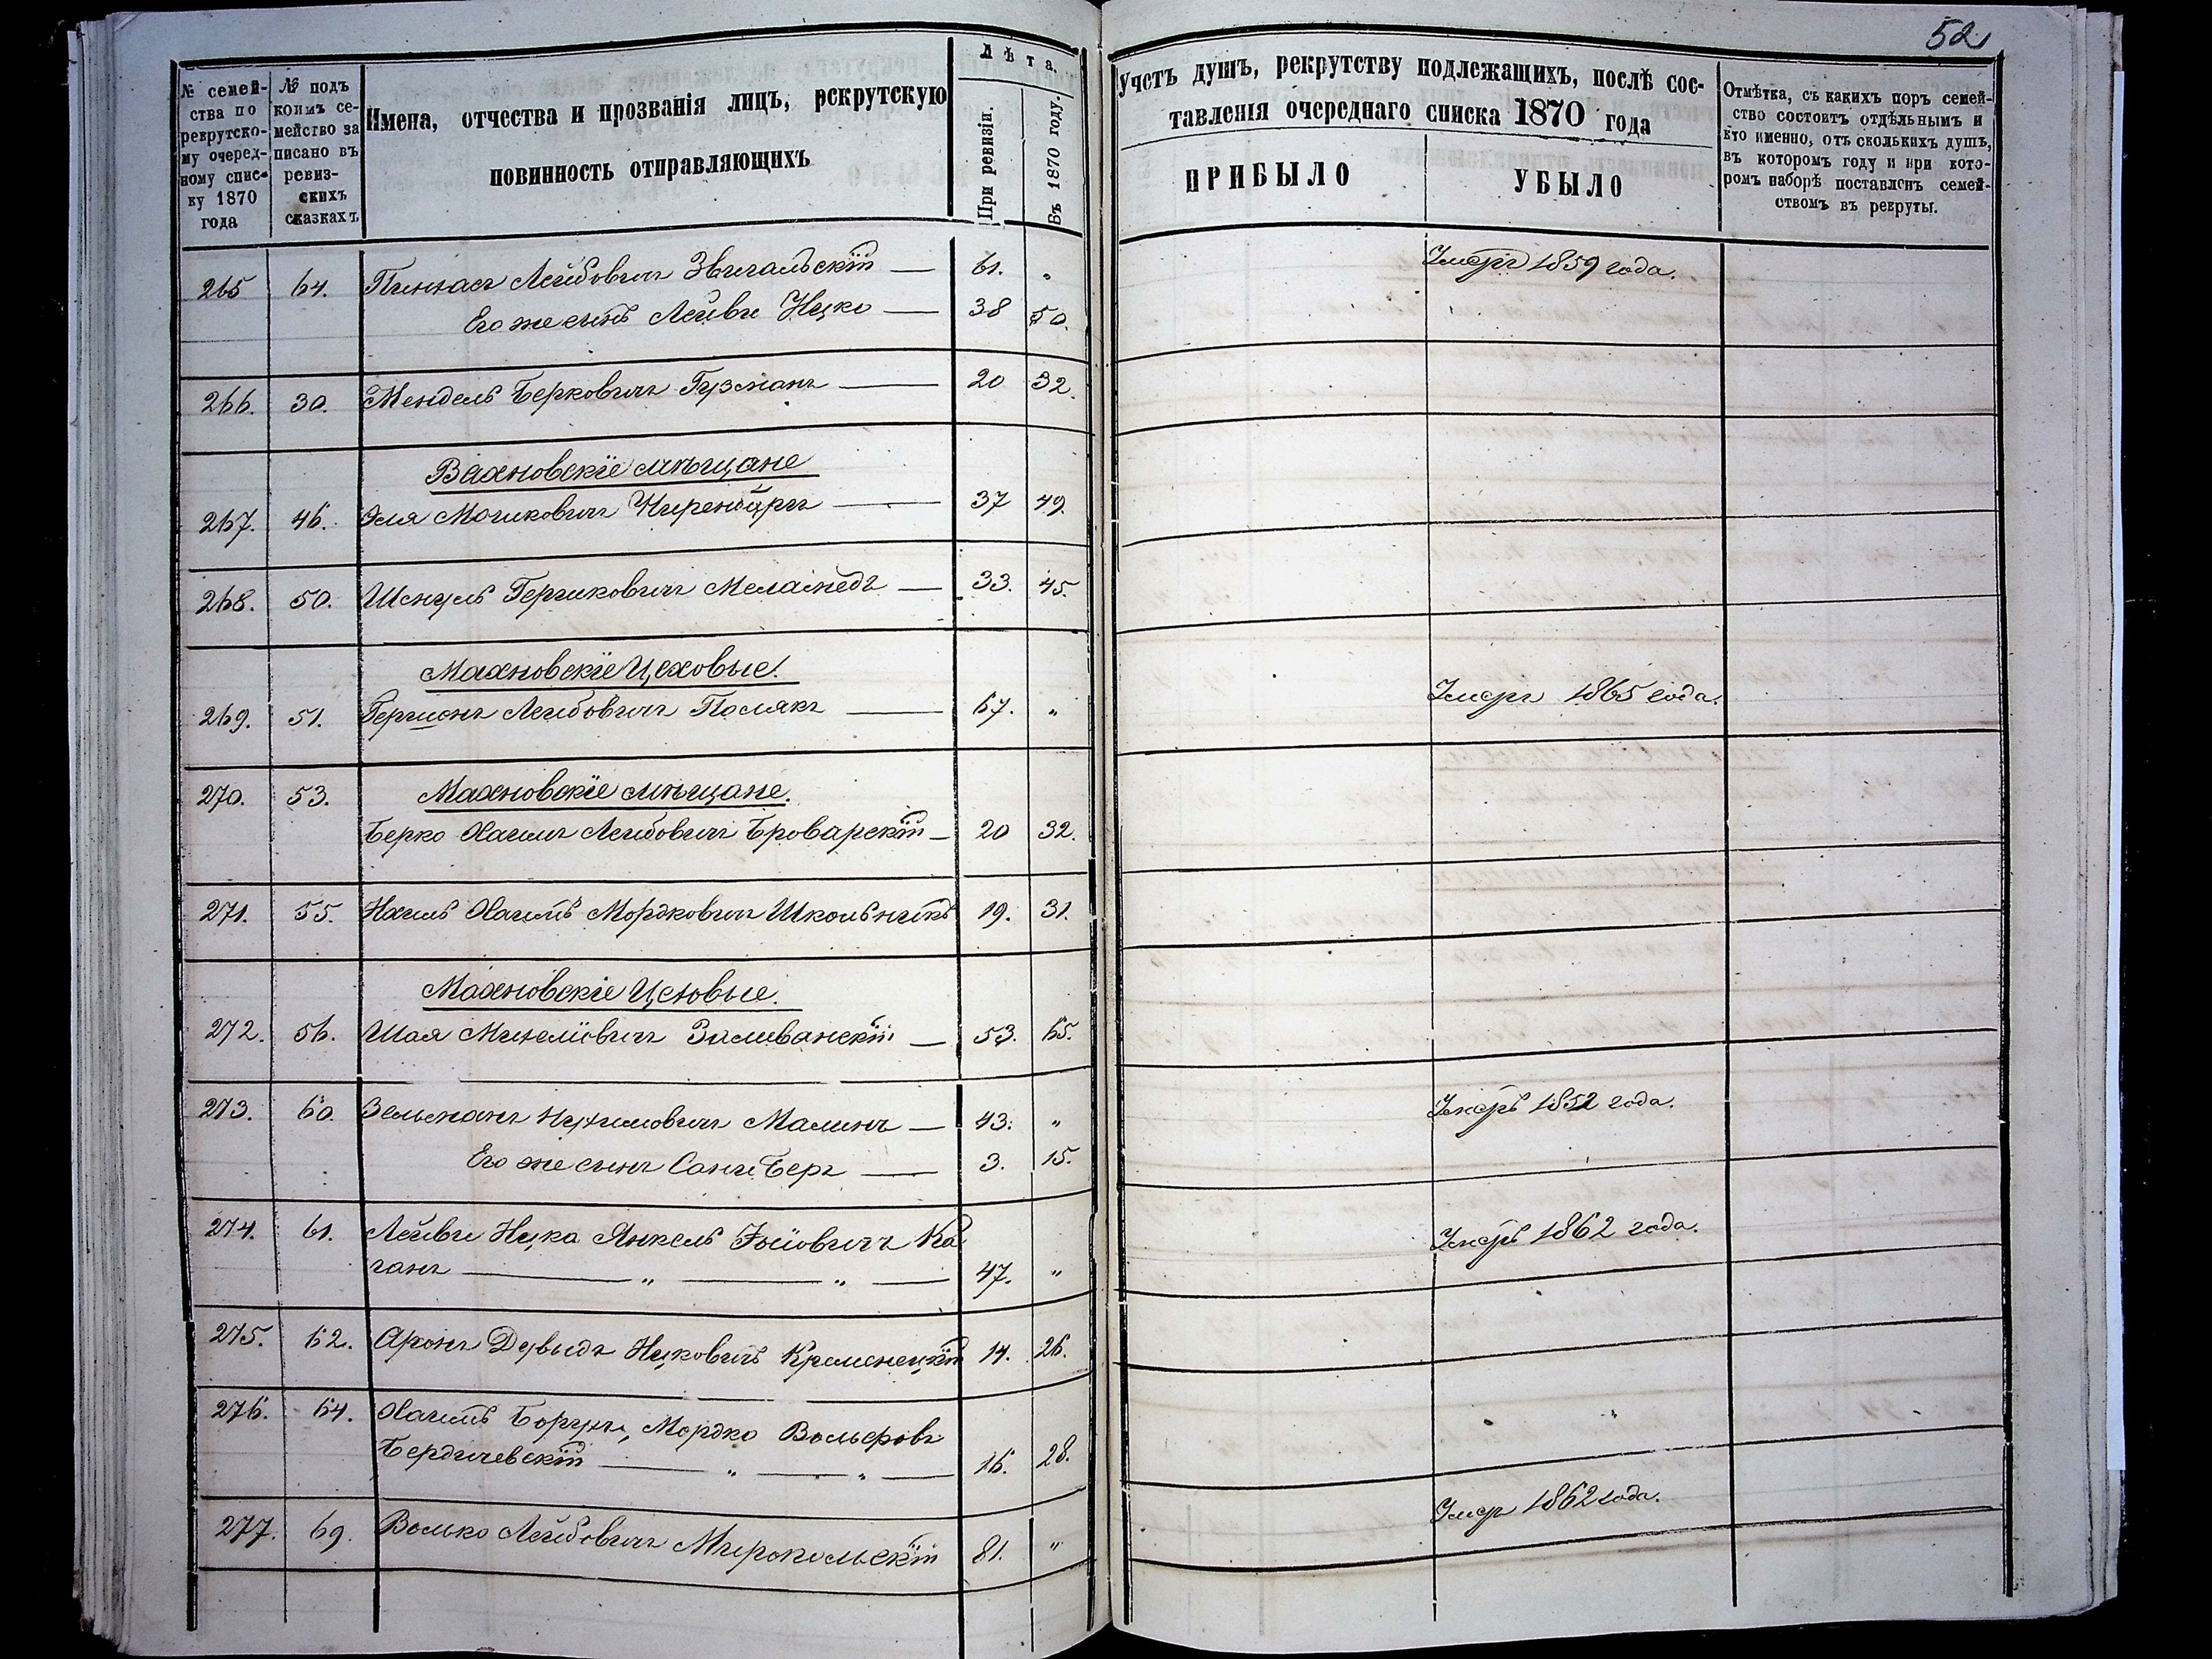 52
№ семейства по рекрутскому очередному списку 1870 года
№ подъ коимъ семейство записано въ ревизскихъ сказкахъ
Имена, отчества и прозванія лицъ, рекрутскую
повинность отправляющихъ
Лѣта.
При ревизіи.
Въ 1870 году.
Учетъ душъ, рекрутству подлежащихъ, послѣ сос-
тавленія очереднаго списка 1870 года
ПРИБЫЛО
УБЫЛО
Отмѣтка, съ какихъ поръ семей-
ство состоитъ отдѣльнымъ и
кто именно, отъ сколькихъ душъ,
въ которомъ году и при кото-
ромъ наборѣ поставленъ семей-
ствомъ въ рекруты.
265 64. Пинхасъ Лейбовичъ Звигальскій — 61. „ Умеръ 1859 года.
Его же сынъ Лейви Ицко — 38 50.
266. 30. Мендель Берковичъ Гузманъ — 20 32.
Вахновскіе мѣщане
267. 46. Эля Мошковичъ — 37 49.
268. 50. Шмуль Гершковичъ Меламедъ — 33. 45.
Махновскіе Цеховые.
269. 51. Гершонъ Лейбовичъ Полякъ — 67. „ Умеръ 1865 года.
270. 53. Махновскіе мѣщане.
Берко Хаимъ Лейбовичъ Броварскій — 20 32.
271. 55. Хаимъ Мордковичъ Школьникъ 19. 31.
Махновскіе Цеховые.
272. 56. Шая Заливанскій — 53. 65.
273. 60. Зельманъ Нухимовичъ Малинъ — 43. „ Умеръ 1852 года.
Его же сынъ Беръ — 3. 15.
274. 61. Лейви Ицка Янкель Ка-
ганъ — „ — „ — 47. „ Умеръ 1862 года.
275. 62. Аронъ Дувыдъ Ицковичъ Кременецкій 14. 26.
276. 64. Хаимъ Борухъ, Мордко Вольфовъ
Бердичевскій — „ — „ — 16. 28.
277. 69. Волько Лейбовичъ Миропольскій 81. „ Умеръ 1862 года.